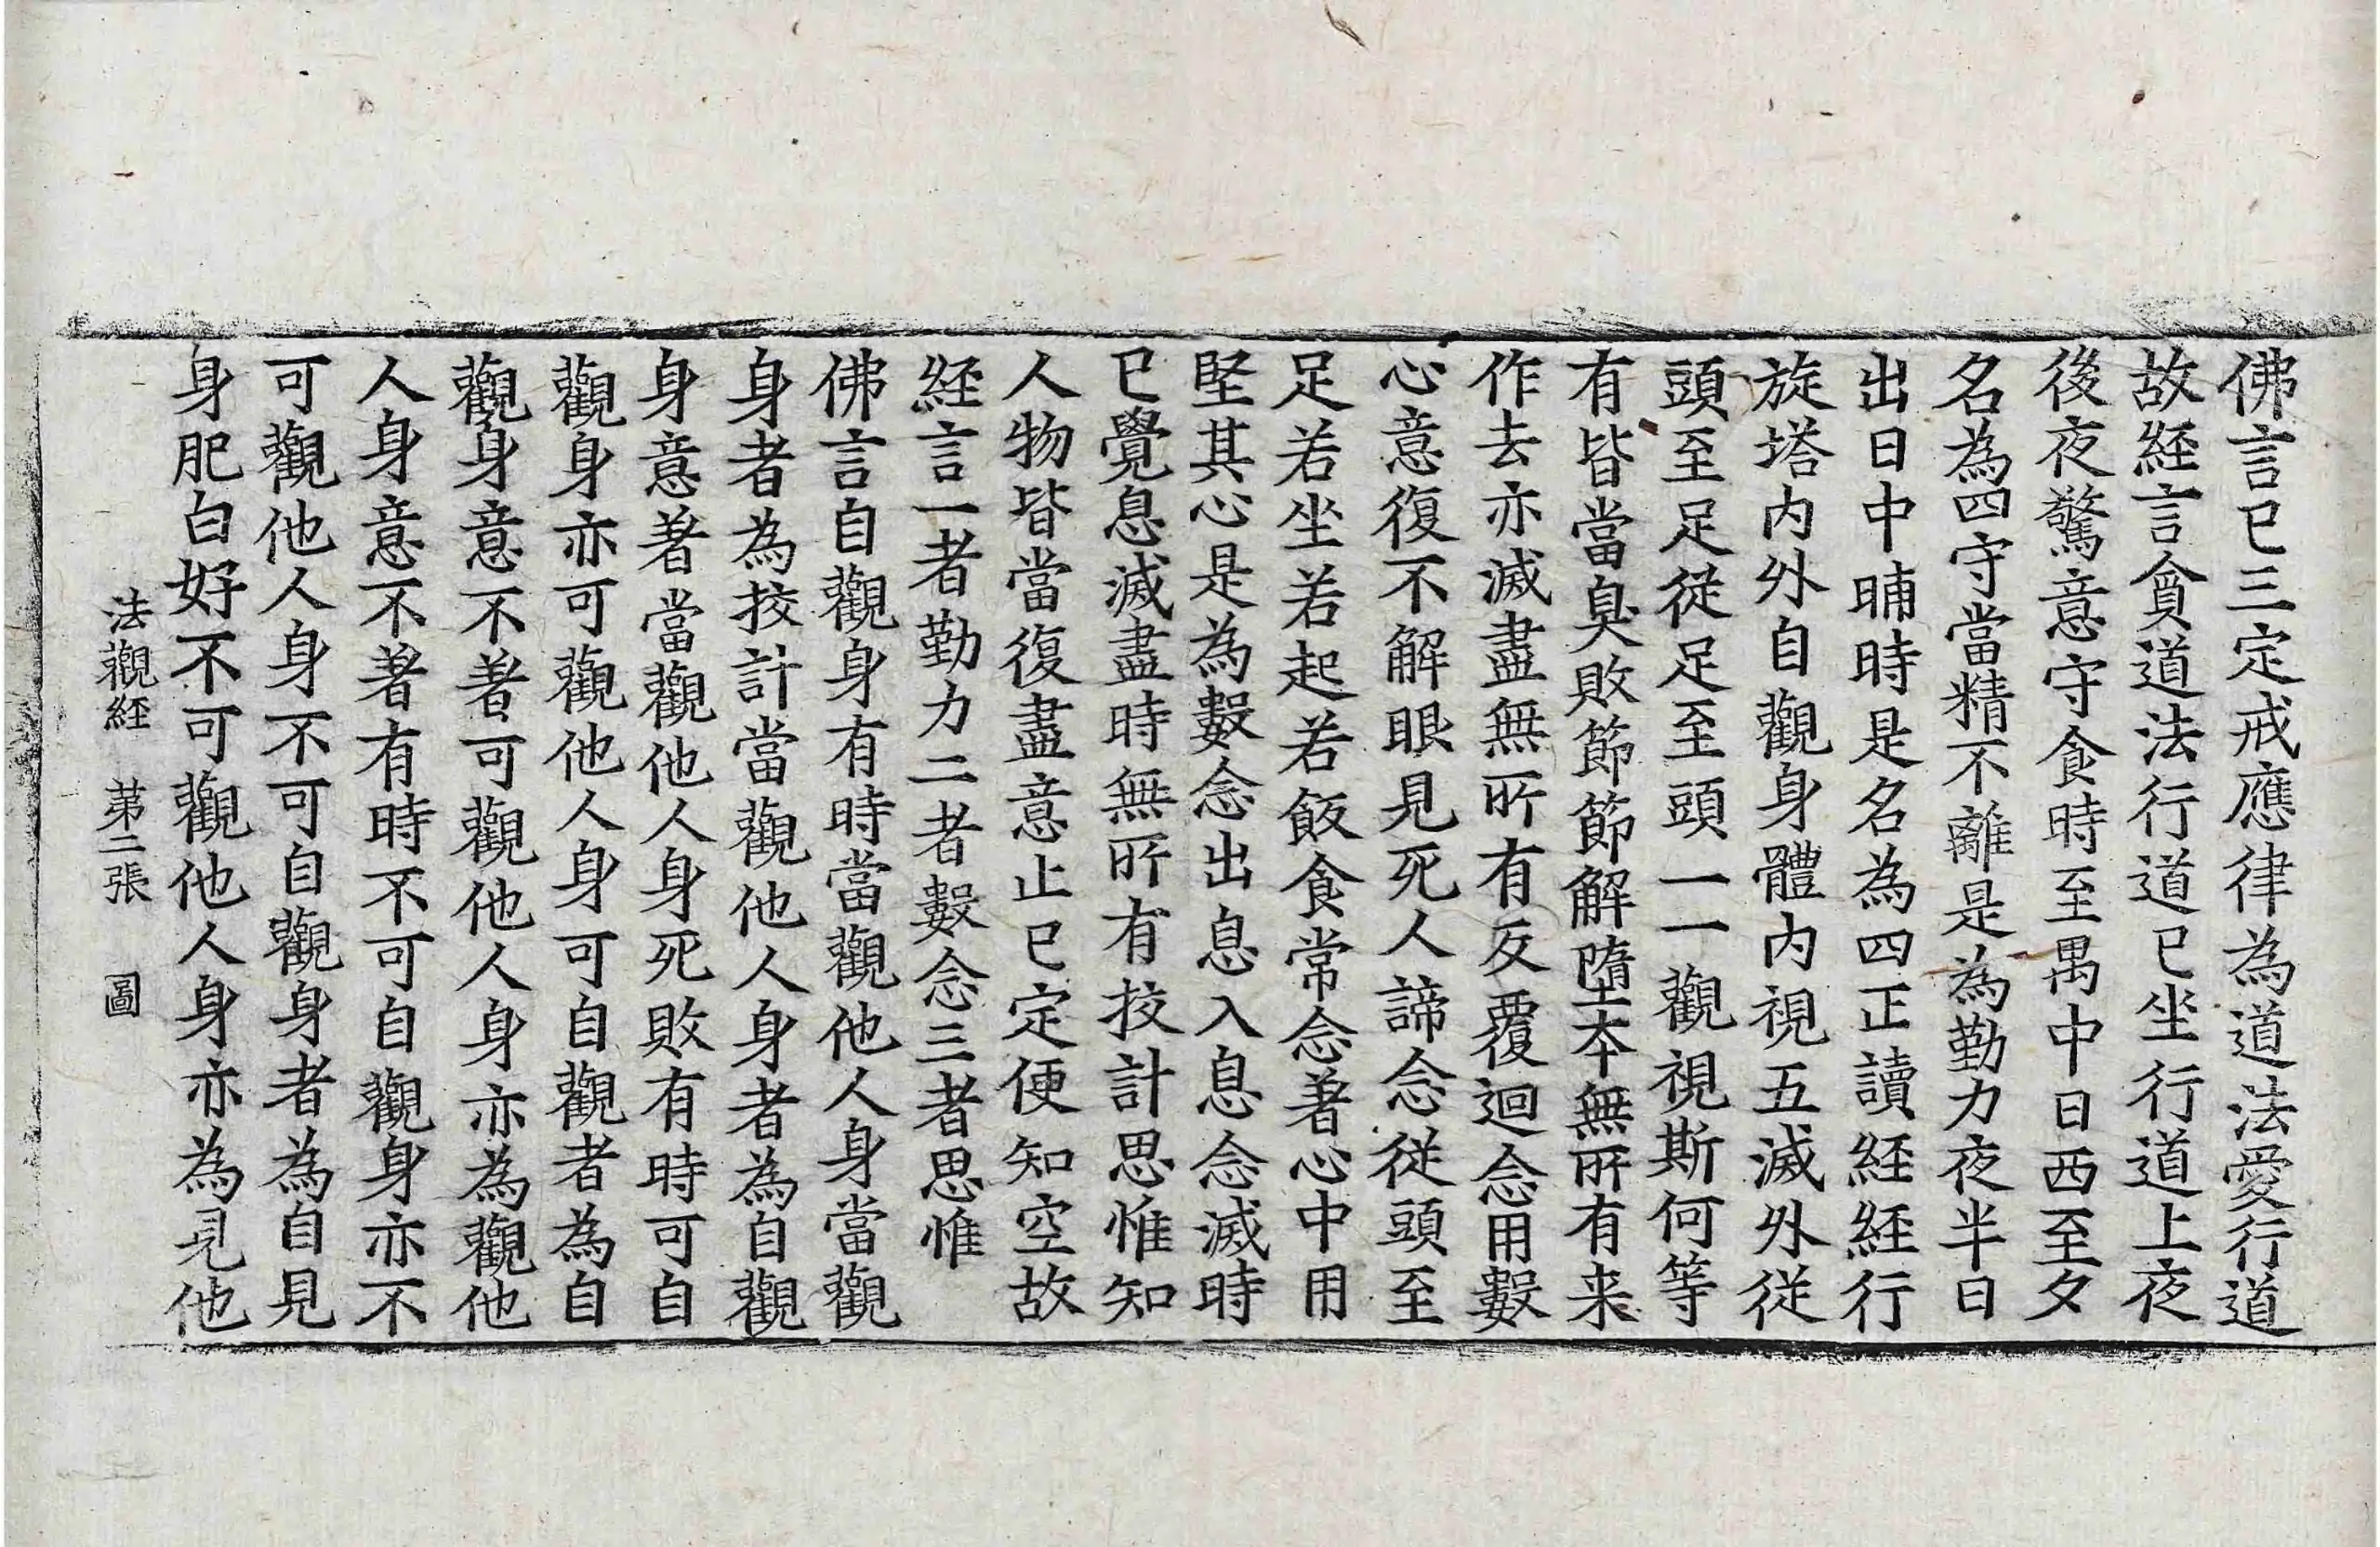 佛言已三定戒應律為道法愛行道
故経言貪道法行道已坐行道上夜
後夜驚意守食時至禺中日西至夕
名為四守當精不離是為勤力夜半日
出日中晡時是名為四正讀経経行
旋塔内外自觀身體内視五滅外従
頭至足従足至頭一一觀視斯何等
有皆當臭敗節節解墮本無所有来
作去亦滅盡無所有反覆迴念用數
心意復不解眼見死人諦念従頭至
足若坐若起若飯食常念著心中用
堅其心是為數念出息入息念滅時
已覺息滅盡時無所有挍計思惟知
人物皆當復盡意止已定便知空故
経言一者勤力二者數念三者思惟
佛言自觀身有時當觀他人身當觀
身者為挍計當觀他人身者為自觀
身意著當觀他人身死敗有時可自
觀身亦可觀他人身可自觀者為自
觀身意不著可觀他人身亦為觀他
人身意不著有時不可自觀身亦不
可觀他人身不可自觀身者為自見
身肥白好不可觀他人身亦為見他
法觀経 苐二張 圖